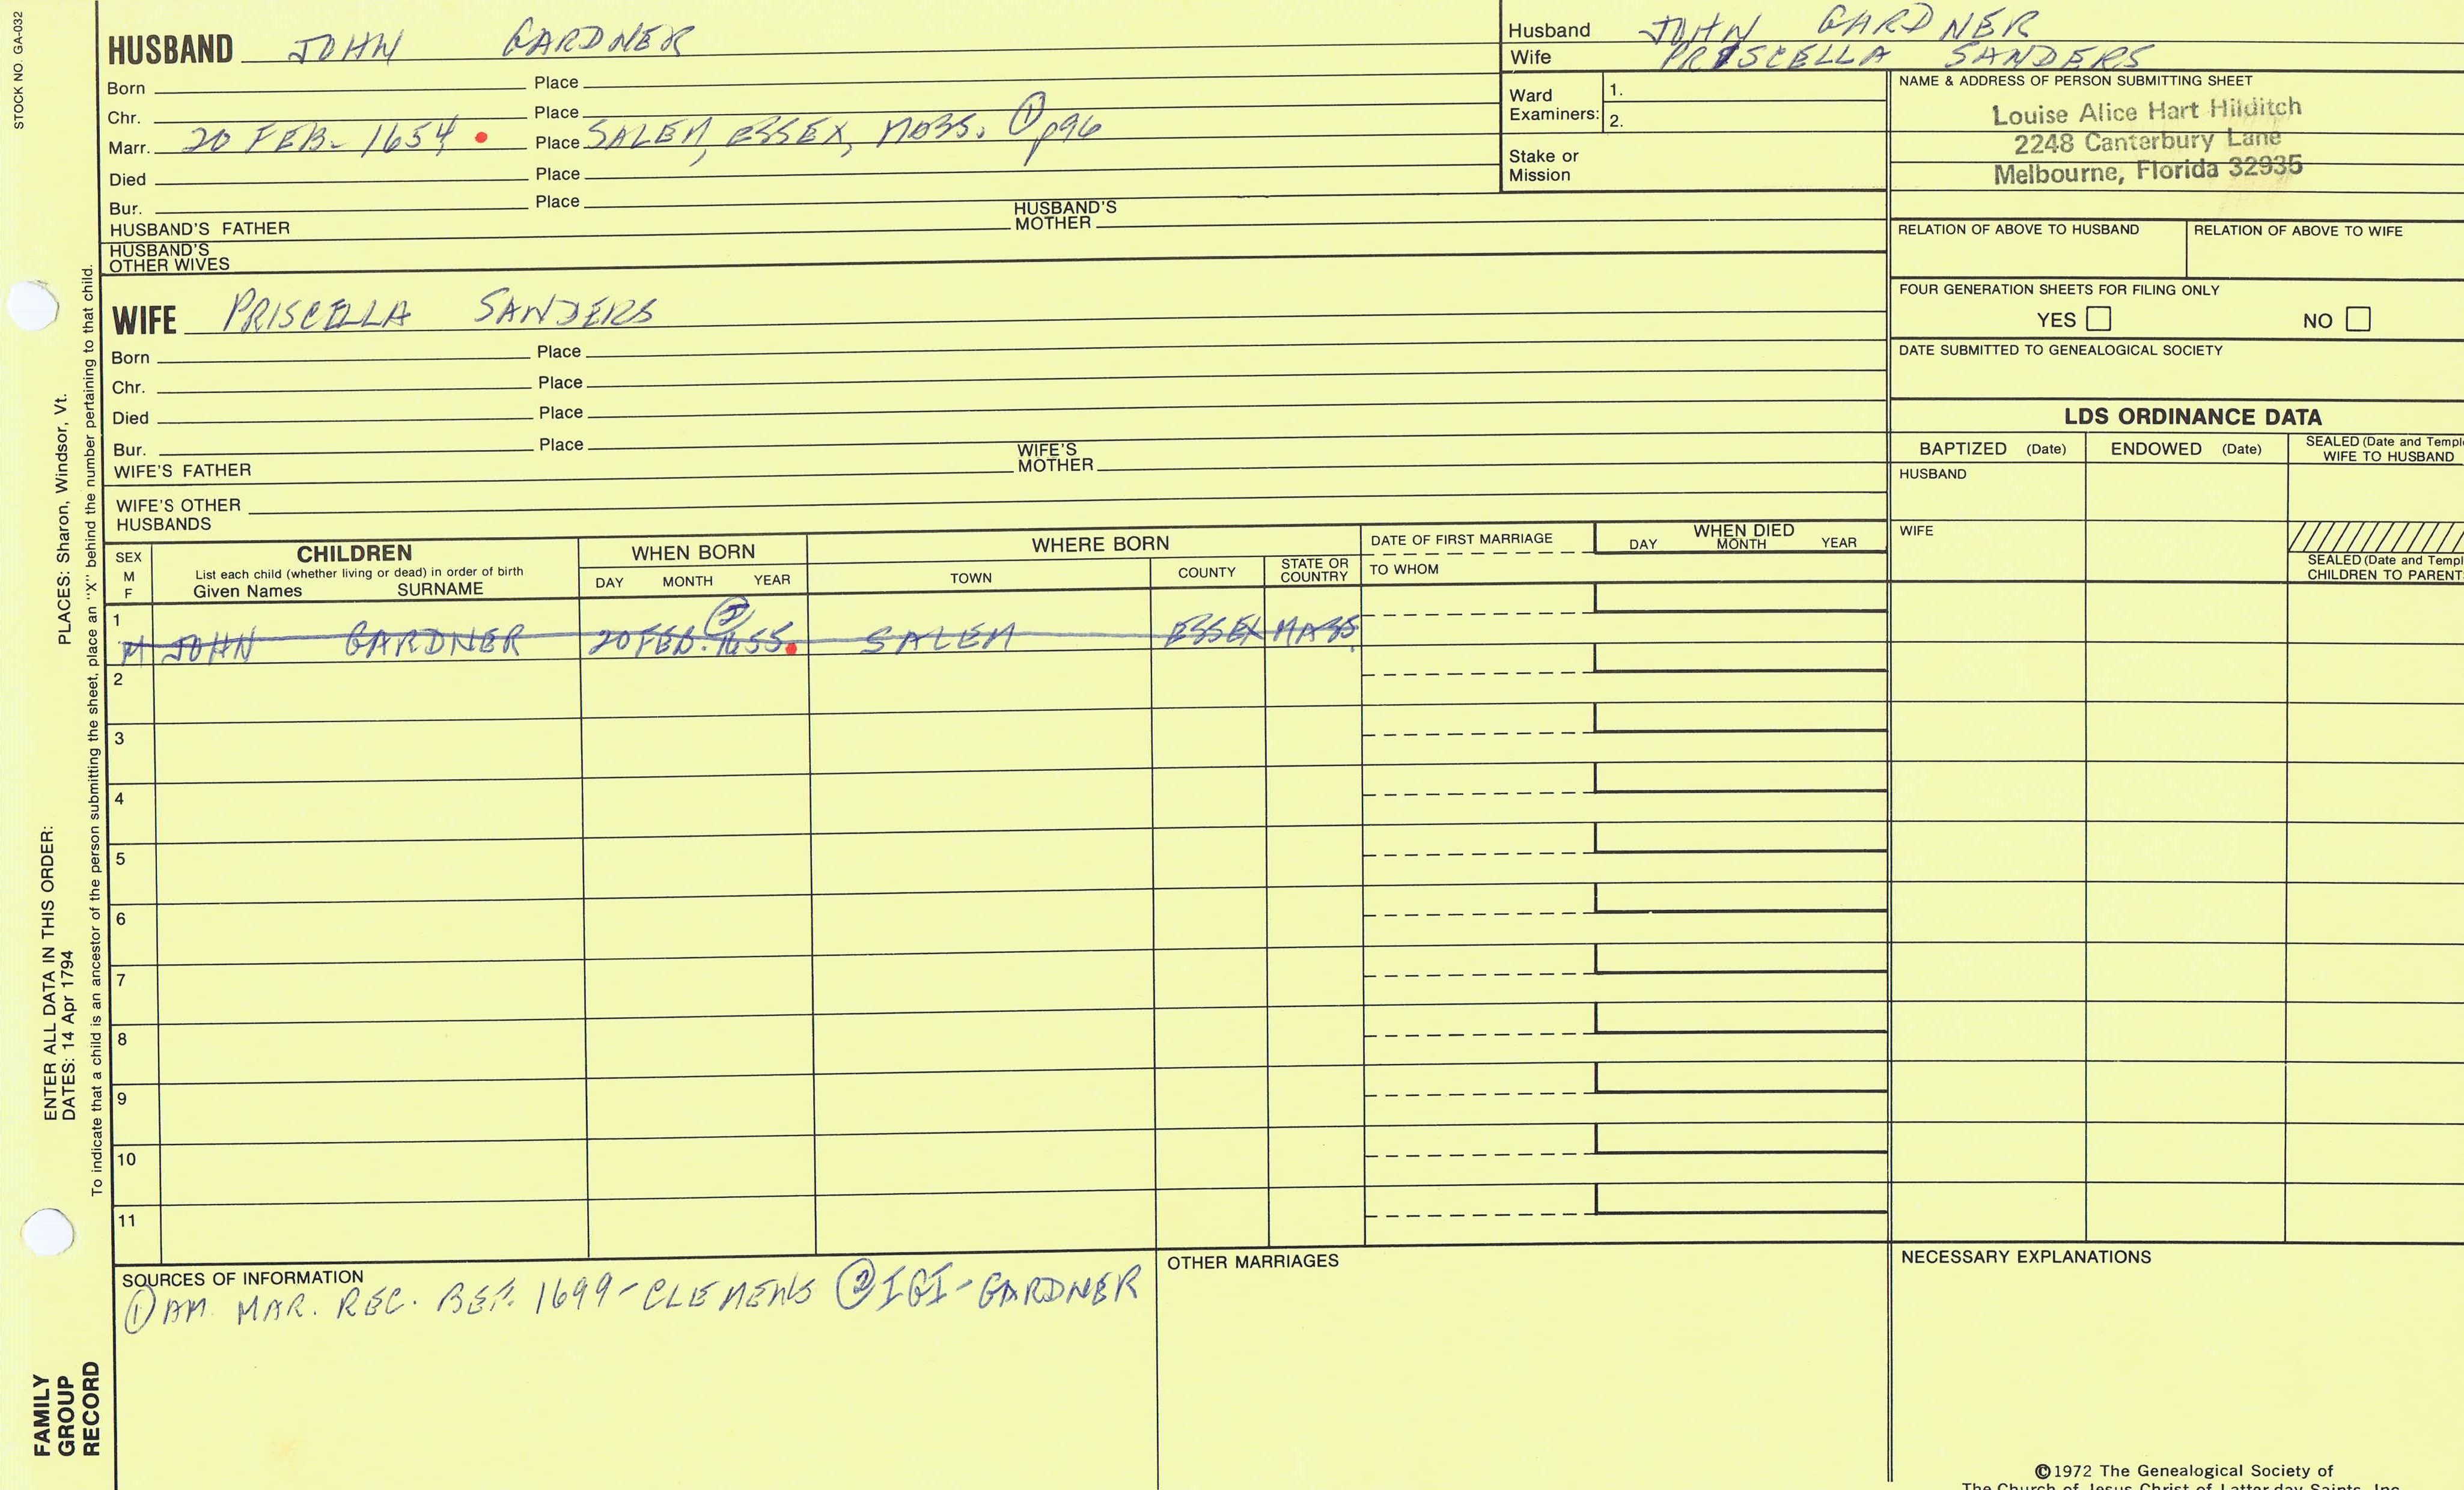 STOCK NO. GA-032
HUSBAND JOHN GARDNER
Born Place
Chr. Place
Marr. 20 FEB. 1654 Place SALEM, ESSEX, MASS. ① p96
Died Place
Bur. Place
HUSBAND'S FATHER HUSBAND'S MOTHER
HUSBAND'S OTHER WIVES
WIFE PRISCELLA SANDERS
Born Place
Chr. Place
Died Place
Bur. Place
WIFE'S FATHER WIFE'S MOTHER
WIFE'S OTHER HUSBANDS
Husband JOHN GARDNER
Wife PRISCELLA SANDERS
Ward Examiners: 1.
2.
Stake or Mission
NAME & ADDRESS OF PERSON SUBMITTING SHEET
Louise Alice Hart Hilditch
2248 Canterbury Lane
Melbourne, Florida 32935
RELATION OF ABOVE TO HUSBAND RELATION OF ABOVE TO WIFE
FOUR GENERATION SHEETS FOR FILING ONLY
YES NO
DATE SUBMITTED TO GENEALOGICAL SOCIETY
LDS ORDINANCE DATA
BAPTIZED (Date) ENDOWED (Date) SEALED (Date and Templ
WIFE TO HUSBAND
HUSBAND
WIFE
SEALED (Date and Templ
CHILDREN TO PARENT
SEX
M
F
CHILDREN
List each child (whether living or dead) in order of birth
Given Names SURNAME
WHEN BORN
DAY MONTH YEAR
WHERE BORN
TOWN COUNTY STATE OR COUNTRY
DATE OF FIRST MARRIAGE
TO WHOM
WHEN DIED
DAY MONTH YEAR
1
②
M JOHN GARDNER 20 FEB. 1655. SALEM ESSEX MASS.
2
3
4
5
6
7
8
9
10
11
SOURCES OF INFORMATION
① AM. MAR. REC. BEF. 1699-CLEMENS ② IGI-GARDNER
OTHER MARRIAGES
NECESSARY EXPLANATIONS
©1972 The Genealogical Society of
The Church of Jesus Christ of Latter-day Saints, Inc.
PLACES: Sharon, Windsor, Vt.
To indicate that a child is an ancestor of the person submitting the sheet, place an "X" behind the number pertaining to that child.
ENTER ALL DATA IN THIS ORDER:
DATES: 14 Apr 1794
FAMILY
GROUP
RECORD